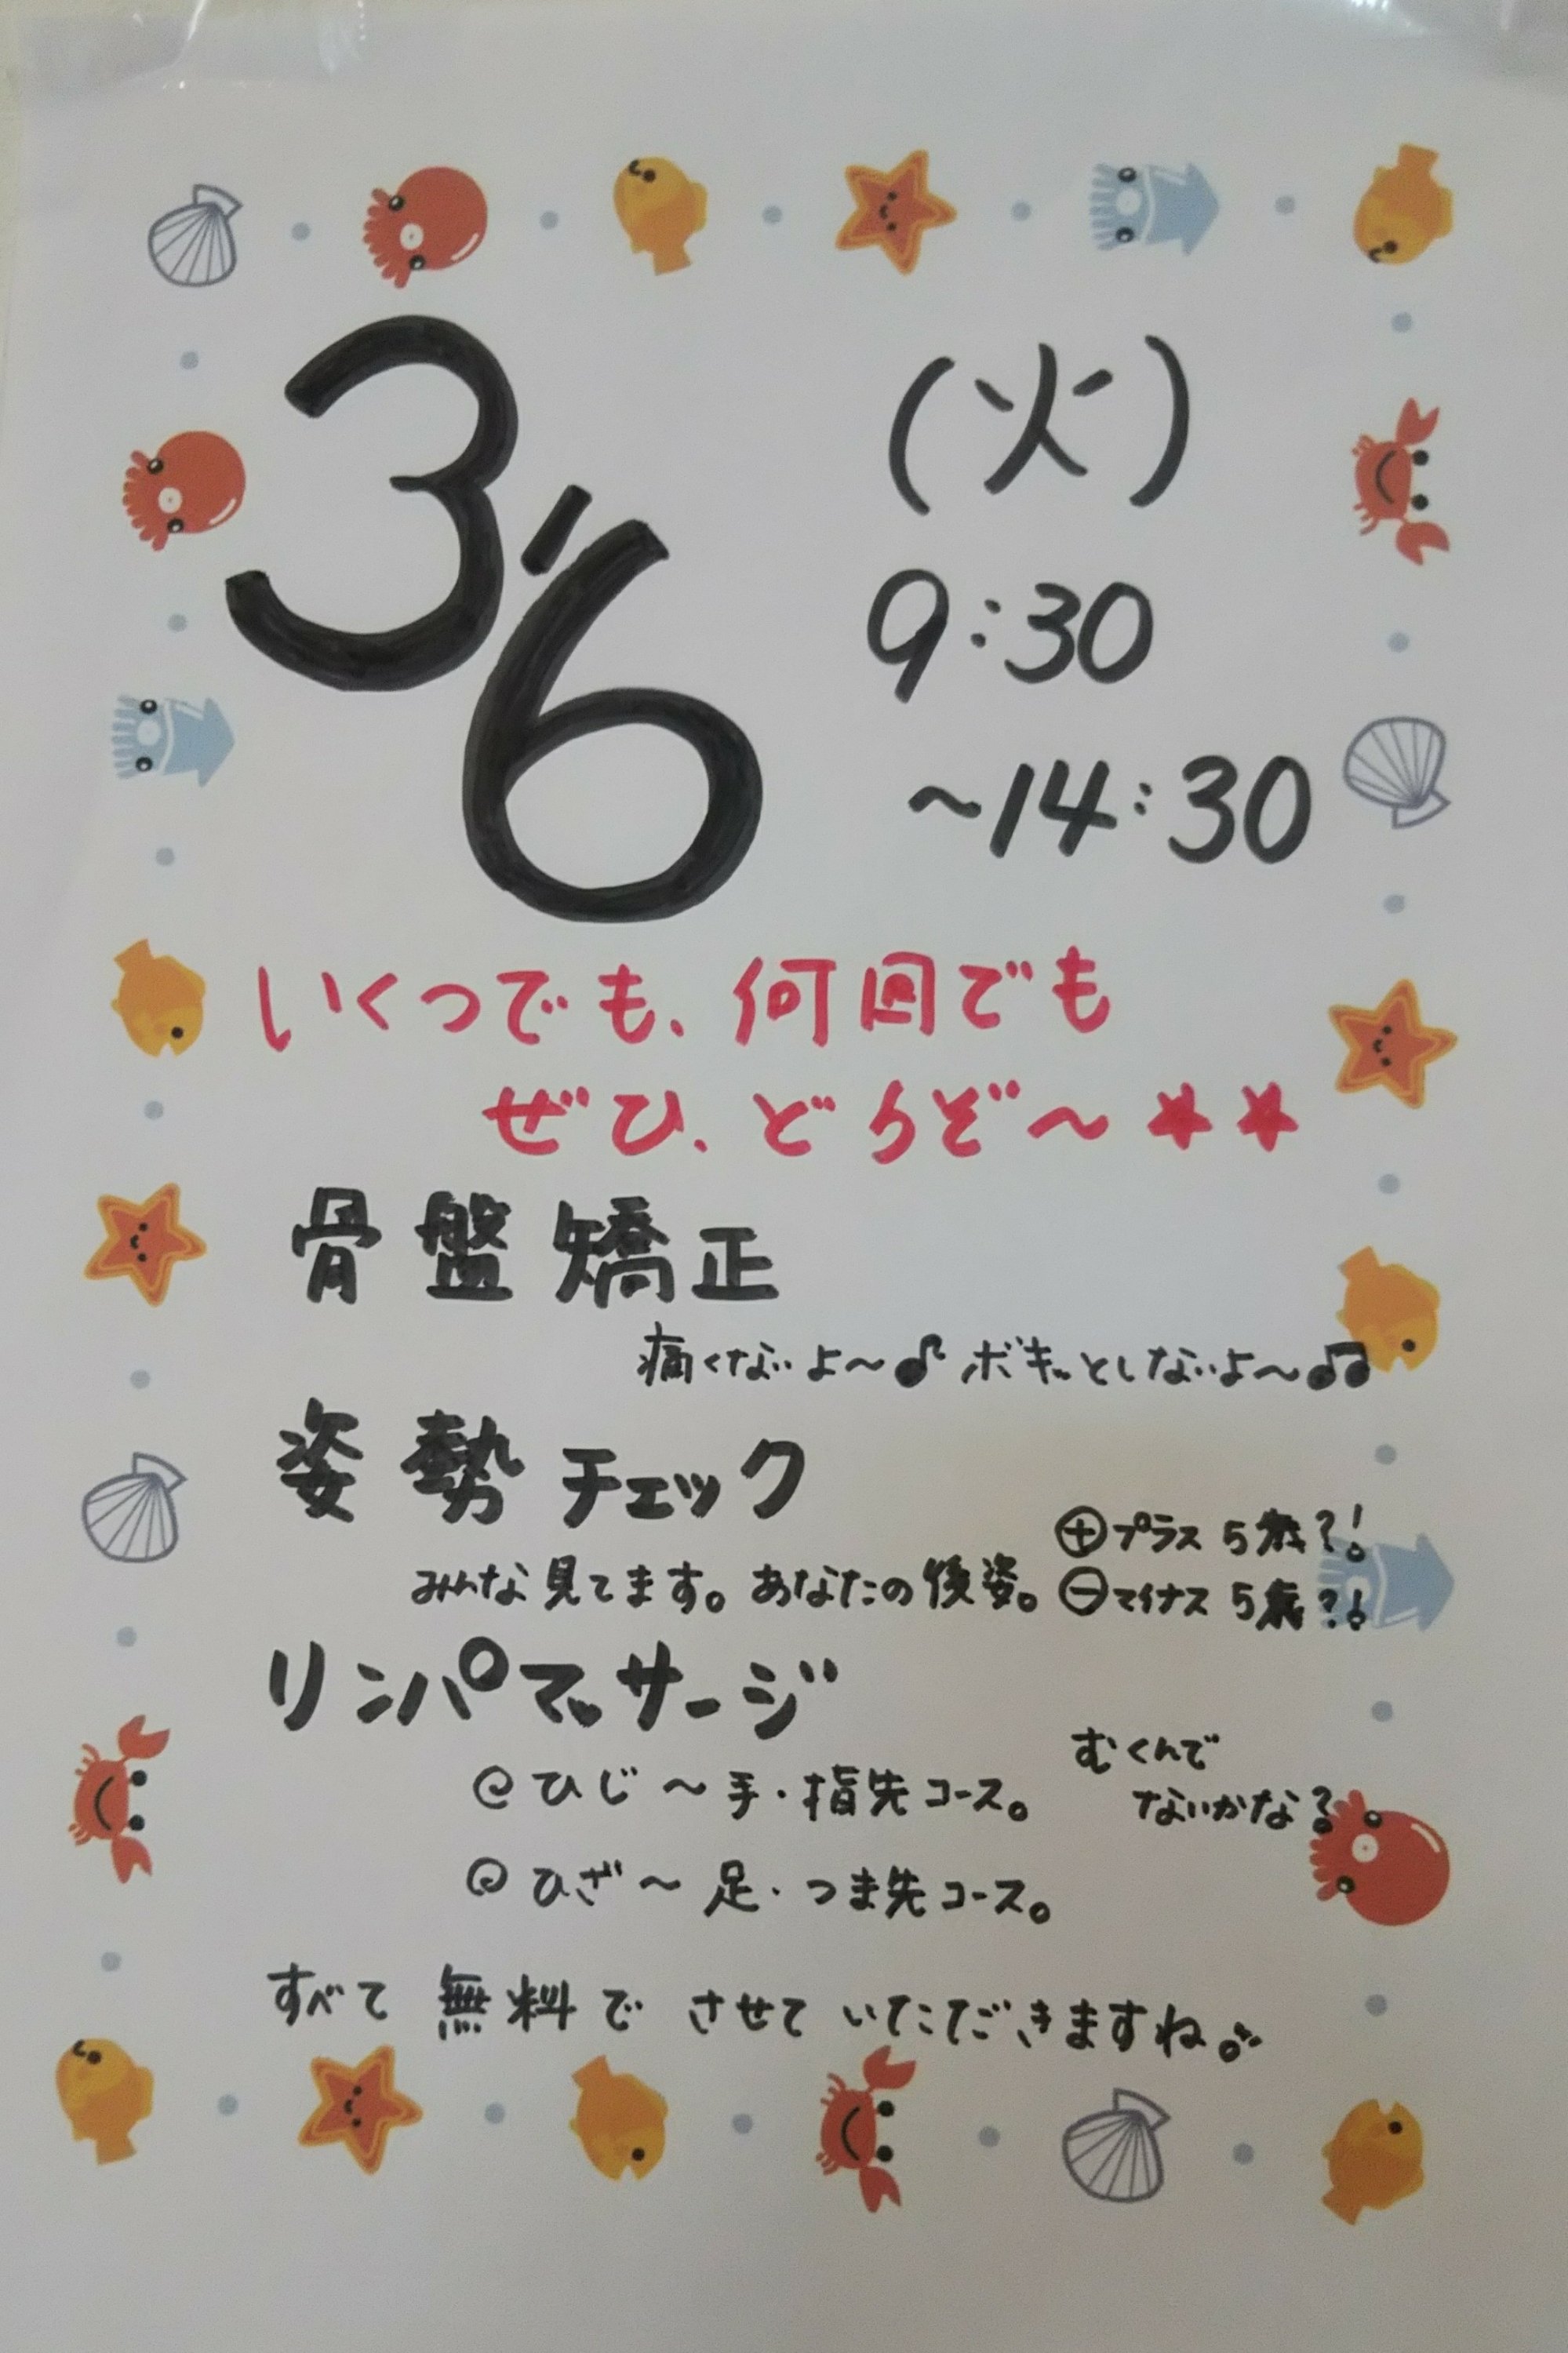 3/6 (火)
9:30
~14:30
いくつでも、何回でも
ぜひ、どうぞ~★★
骨盤矯正
痛くないよ~♪ボキッとしないよ~♫
姿勢チェック
⊕プラス 5歳?!
みんな見てます。あなたの後姿。⊖マイナス 5歳?!
リンパマッサージ
@ひじ~手・指先コース。
むくんで
ないかな?
@ひざ~足・つま先コース。
すべて無料でさせていただきますね。